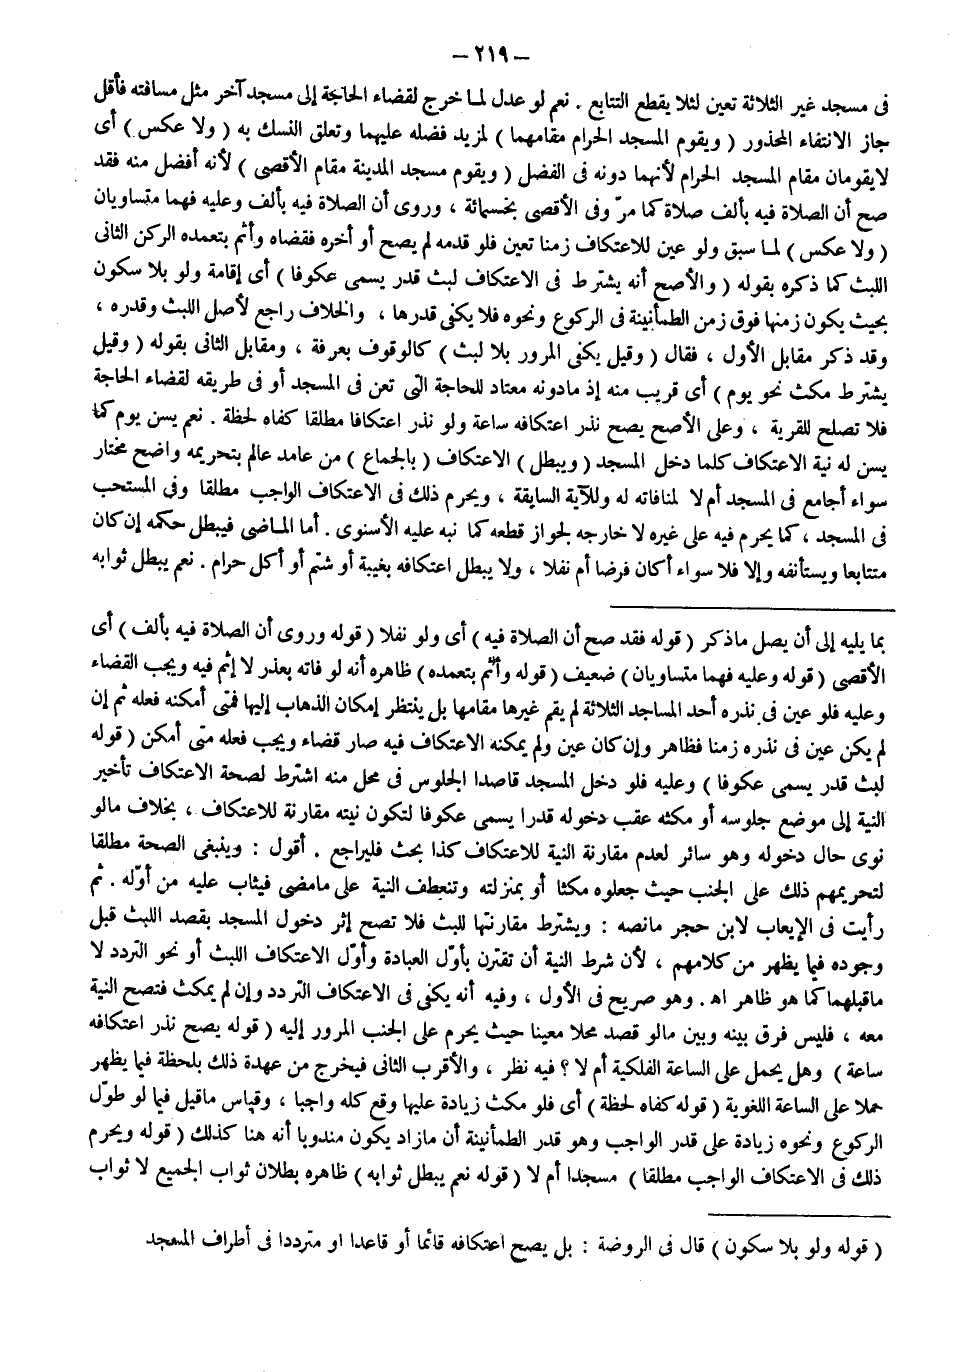 – ٢١٩ –
فى مسجد غير الثلاثة تعين لئلا يقطع التتابع . نعم لو عدل لما خرج لقضاء الحاجة إلى مسجد آخر مثل مسافته فأقل
جاز الانتفاء المحذور ( ويقوم المسجد الحرام مقامهما ) لمزيد فضله عليهما وتعلق النسك به ( ولا عكس ) أى
لايقومان مقام المسجد الحرام لأنهما دونه فى الفضل ( ويقوم مسجد المدينة مقام الأقصى ) لأنه أفضل منه فقد
صح أن الصلاة فيه بألف صلاة كما مرّ وفى الأقصى بخمسمائة ، وروى أن الصلاة فيه بألف وعليه فهما متساويان
( ولا عكس ) لما سبق ولو عين للاعتكاف زمنا تعين فلو قدمه لم يصح أو أخره فقضاه وأثم بتعمده الركن الثانى
اللبث كما ذكره بقوله ( والأصح أنه يشترط فى الاعتكاف لبث قدر يسمى عكوفا ) أى إقامة ولو بلا سكون
بحيث يكون زمنها فوق زمن الطمأنينة فى الركوع ونحوه فلا يكفى قدرها ، والخلاف راجع لأصل اللبث وقدره ،
وقد ذكر مقابل الأول ، فقال ( وقيل يكفى المرور بلا لبث ) كالوقوف بعرفة ، ومقابل الثانى بقوله ( وقيل
يشترط مكث نحو يوم ) أى قريب منه إذ مادونه معتاد للحاجة التى تعن فى المسجد أو فى طريقه لقضاء الحاجة
فلا تصلح للقربة ، وعلى الأصح يصح نذر اعتكافه ساعة ولو نذر اعتكافا مطلقا كفاه لحظة . نعم يسن يوم كما
يسن له نية الاعتكاف كلما دخل المسجد ( ويبطل ) الاعتكاف ( بالجماع ) من عامد عالم بتحريمه واضح مختار
سواء أجامع فى المسجد أم لا لمنافاته له وللآية السابقة ، ويحرم ذلك فى الاعتكاف الواجب مطلقا وفى المستحب
فى المسجد ، كما يحرم فيه على غيره لا خارجه لجواز قطعه كما نبه عليه الأسنوى . أما الماضى فيبطل حكمه إن كان
متتابعا ويستأنفه وإلا فلا سواء أكان فرضا أم نفلا ، ولا يبطل اعتكافه بغيبة أو شتم أو أكل حرام . نعم يبطل ثوابه
بما يليه إلى أن يصل ماذكر ( قوله فقد صح أن الصلاة فيه ) أى ولو نفلا ( قوله وروى أن الصلاة فيه بألف ) أى
الأقصى ( قوله وعليه فهما متساويان ) ضعيف ( قوله وأثم بتعمده ) ظاهره أنه لو فاته بعذر لا إثم فيه ويجب القضاء
وعليه فلو عين فى نذره أحد المساجد الثلاثة لم يقم غيرها مقامها بل ينتظر إمكان الذهاب إليها فمتى أمكنه فعله ثم إن
لم يكن عين فى نذره زمنا فظاهر وإن كان عين ولم يمكنه الاعتكاف فيه صار قضاء ويجب فعله متى أمكن ( قوله
لبث قدر يسمى عكوفا ) وعليه فلو دخل المسجد قاصدا الجلوس فى محل منه اشترط لصحة الاعتكاف تأخير
النية إلى موضع جلوسه أو مكثه عقب دخوله قدرا يسمى عكوفا لتكون نيته مقارنة للاعتكاف ، بخلاف مالو
نوى حال دخوله وهو سائر لعدم مقارنة النية للاعتكاف كذا بحث فليراجع . أقول : وينبغى الصحة مطلقا
لتحريمهم ذلك على الجنب حيث جعلوه مكثا أو بمنزلته وتنعطف النية على مامضى فيثاب عليه من أوّله . ثم
رأيت فى الإيعاب لابن حجر مانصه : ويشترط مقارنتها للبث فلا تصح إثر دخول المسجد بقصد اللبث قبل
وجوده فيما يظهر من كلامهم ، لأن شرط النية أن تقترن بأوّل العبادة وأوّل الاعتكاف اللبث أو نحو التردد لا
ماقبلهما كما هو ظاهر اه‍ . وهو صريح فى الأول ، وفيه أنه يكفى فى الاعتكاف التردد وإن لم يمكث فتصح النية
معه ، فليس فرق بينه وبين مالو قصد محلا معينا حيث يحرم على الجنب المرور إليه ( قوله يصح نذر اعتكافه
ساعة ) وهل يحمل على الساعة الفلكية أم لا ؟ فيه نظر ، والأقرب الثانى فيخرج من عهدة ذلك بلحظة فيما يظهر
حملا على الساعة اللغوية ( قوله كفاه لحظة ) أى فلو مكث زيادة عليها وقع كله واجبا ، وقياس ماقيل فيما لو طوّل
الركوع ونحوه زيادة على قدر الواجب وهو قدر الطمأنينة أن مازاد يكون مندوبا أنه هنا كذلك ( قوله ويحرم
ذلك فى الاعتكاف الواجب مطلقا ) مسجدا أم لا ( قوله نعم يبطل ثوابه ) ظاهره بطلان ثواب الجميع لا ثواب
( قوله ولو بلا سكون ) قال فى الروضة : بل يصح اعتكافه قائما أو قاعدا او مترددا فى أطراف المسجد